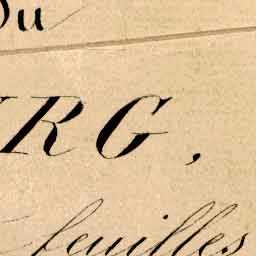 Du
RG,
feuilles